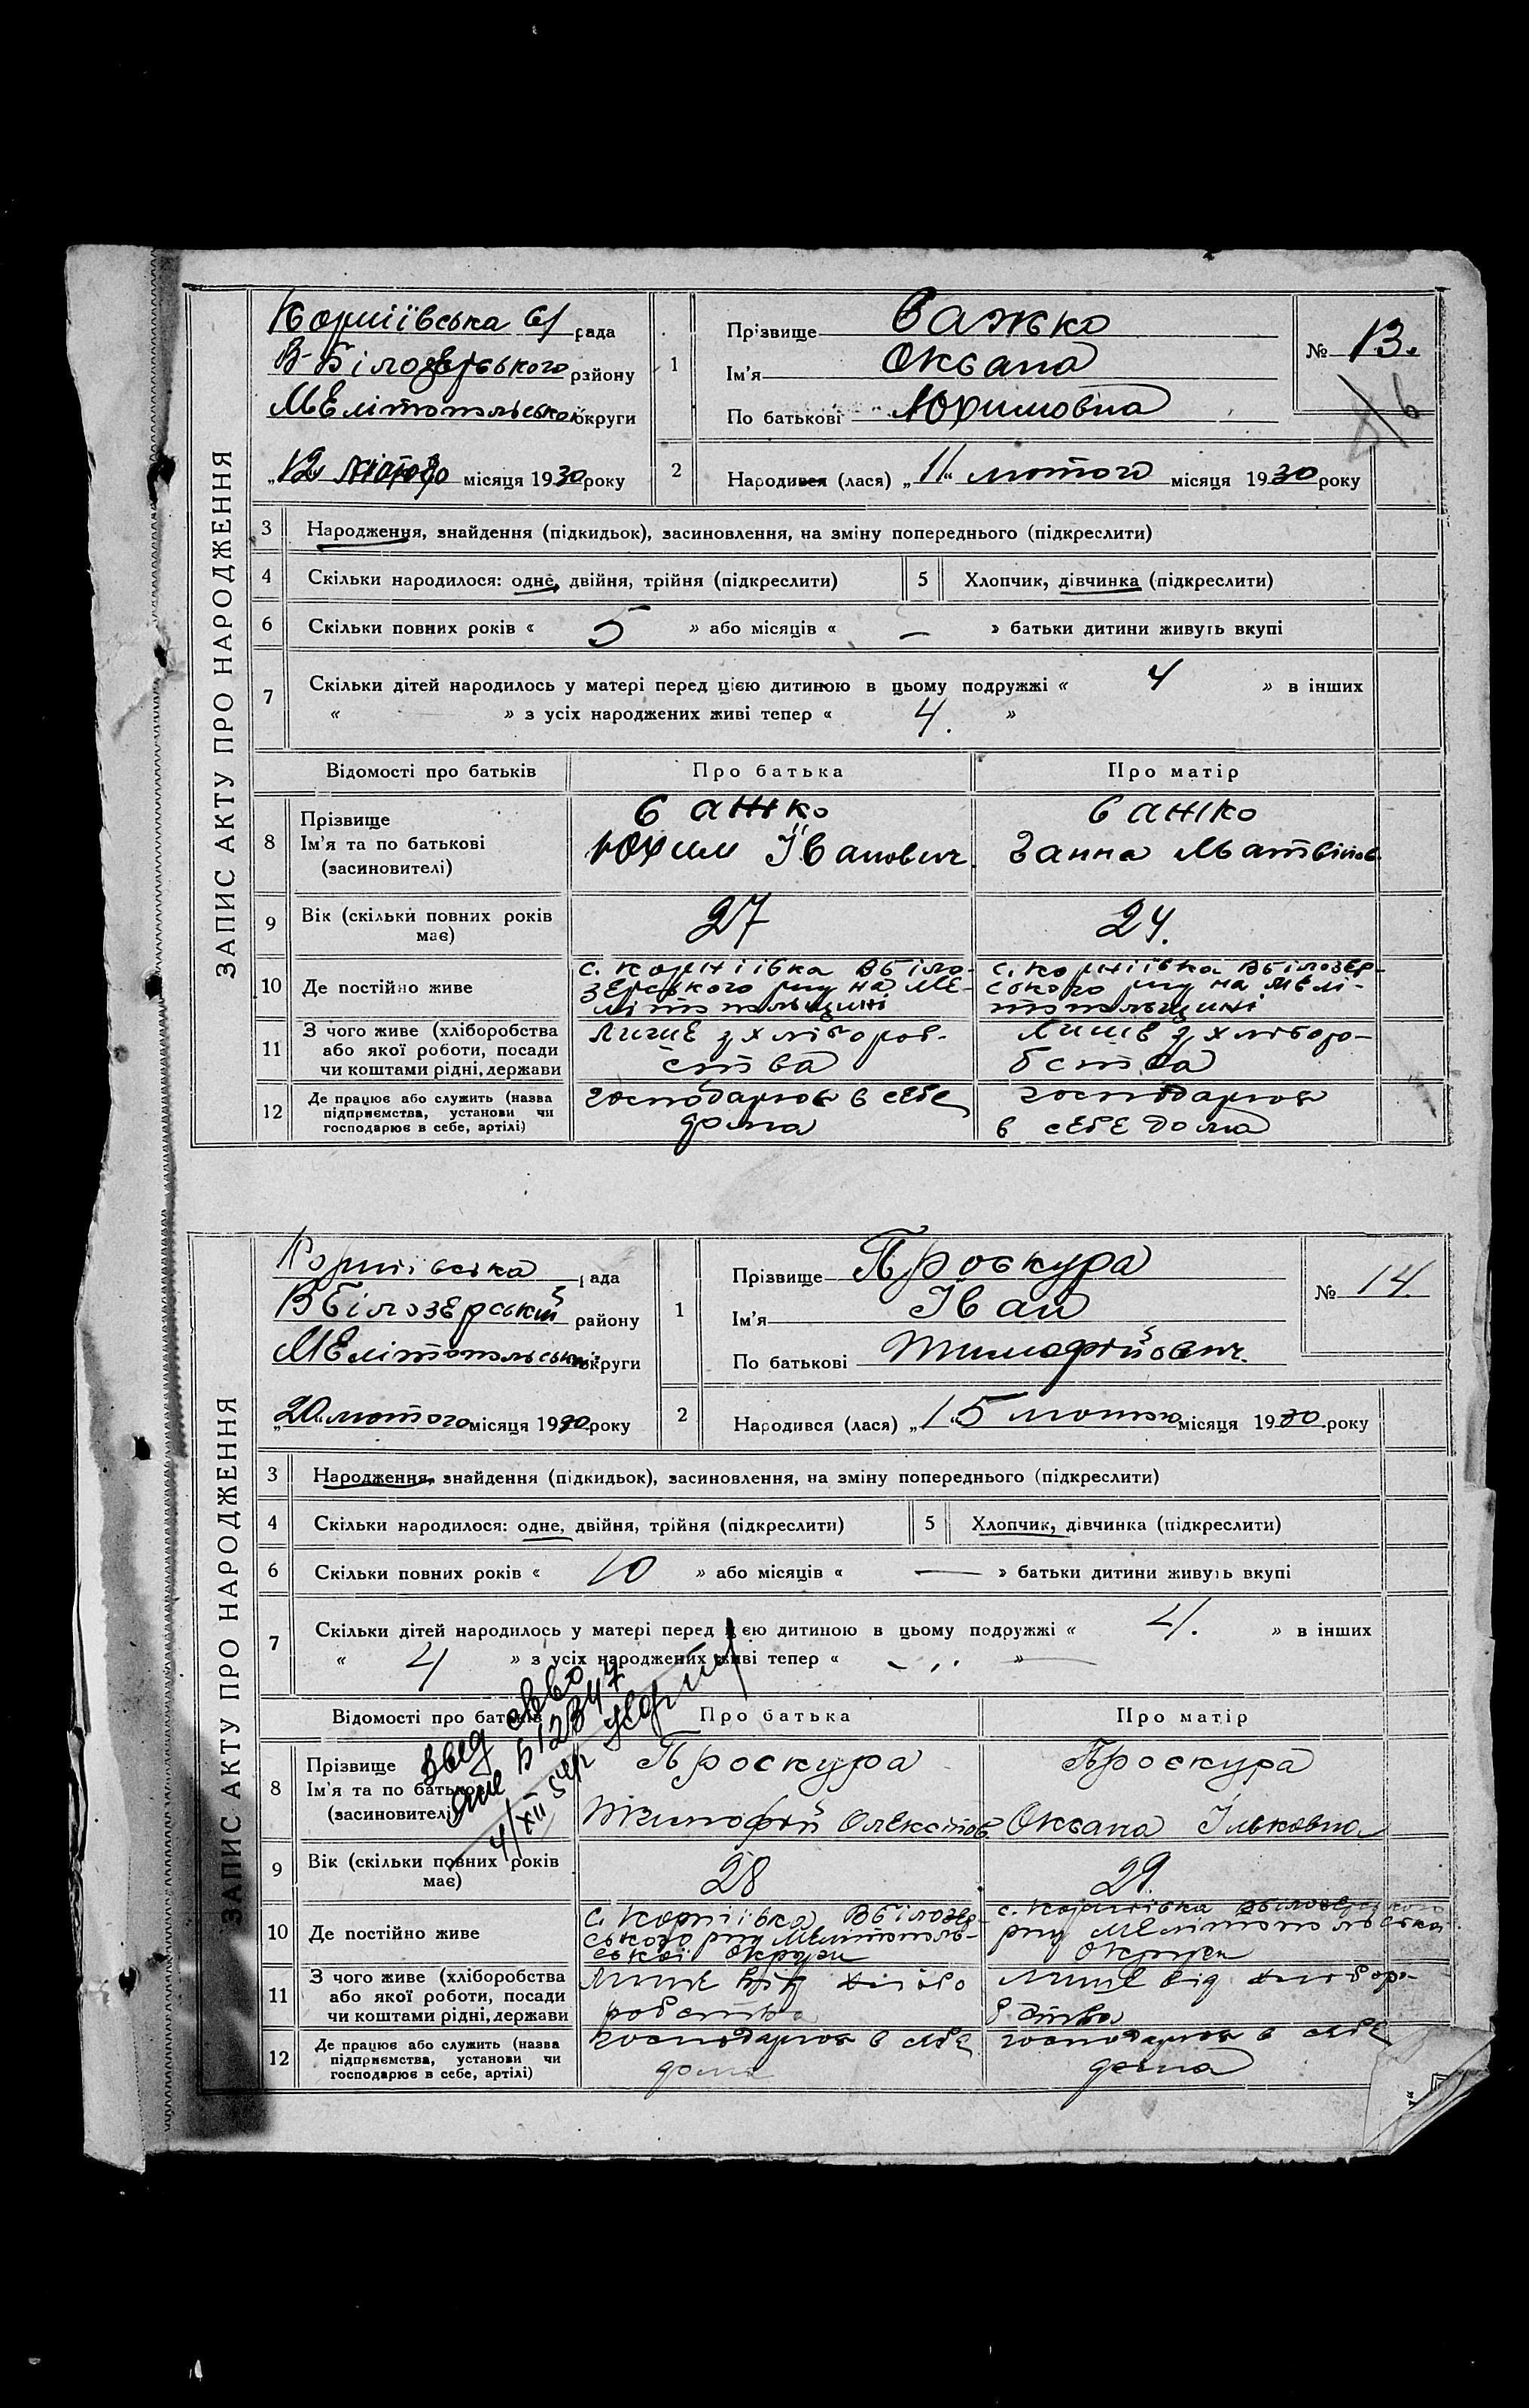 ЗАПИС АКТУ ПРО НАРОДЖЕННЯ
Корніївська с/ рада
В-Білозерського району
Мелітопольської округи
„12“ лютого місяця 1930 року
1
Прізвище Сажко
Ім'я Оксана
По батькові Юхимовна
№ 13.
2
Народився (лася) „11“ лютого місяця 1930 року
3 Народження, знайдення (підкидьок), засиновлення, на зміну попереднього (підкреслити)
4 Скільки народилося: одне, двійня, трійня (підкреслити)
5 Хлопчик, дівчинка (підкреслити)
6 Скільки повних років « 5 » або місяців « — » батьки дитини живуть вкупі
7 Скільки дітей народилось у матері перед цією дитиною в цьому подружжі « 4 » в інших
« » з усіх народжених живі тепер « 4. »
Відомості про батьків Про батька Про матір
8
Прізвище
Ім'я та по батькові
(засиновителі)
Сажко
Юхим Іванович.
Сажко
Ганна Матвіїов
9 Вік (скільки повних років має)
27
24.
10 Де постійно живе
с. Корніївка В Біло-
зерського р-ну на Ме-
літопольщині
с. Корніївка В Білозер-
ського р-ну на Мелі-
топольщині
11 З чого живе (хліборобства
або якої роботи, посади
чи коштами рідні, держави
Лише з хлібороб-
ства
Лише з хліборо-
бства
12 Де працює або служить (назва
підприємства, установи чи
господарює в себе, артілі)
господарює в себе
дома
господарює
в себе дома
ЗАПИС АКТУ ПРО НАРОДЖЕННЯ
Корніївська рада
В Білозерський району
Мелітопольської округи
„20“ лютого місяця 1930 року
1
Прізвище Проскура
Ім'я Іван
По батькові Тимофійович.
№ 14.
2
Народився (лася) „15 лютого місяця 1930 року
3 Народження, знайдення (підкидьок), засиновлення, на зміну попереднього (підкреслити)
4 Скільки народилося: одне, двійня, трійня (підкреслити)
5 Хлопчик, дівчинка (підкреслити)
6 Скільки повних років « 10 » або місяців « — » батьки дитини живуть вкупі
7 Скільки дітей народилось у матері перед цією дитиною в цьому подружжі « 4. » в інших
« 4 » з усіх народжених живі тепер « »
Відомості про батьків Про батька Про матір
8
Прізвище
Ім'я та по батькові
(засиновителі)
Проскура
Тимофій Олексійов.
Проскура
Оксана Ільковна
9 Вік (скільки повних років має)
28
29.
10 Де постійно живе
с. Корніївка В Білозер-
ського р-ну Мелітополь-
ської округи
с. Корніївка В Білозерського
р-ну Мелітопольської
округи
11 З чого живе (хліборобства
або якої роботи, посади
чи коштами рідні, держави
Лише від хлібо
робства
Лише від хлібор-
бства
12 Де працює або служить (назва
підприємства, установи чи
господарює в себе, артілі)
господарює в себе
дома
господарює в себе
дома